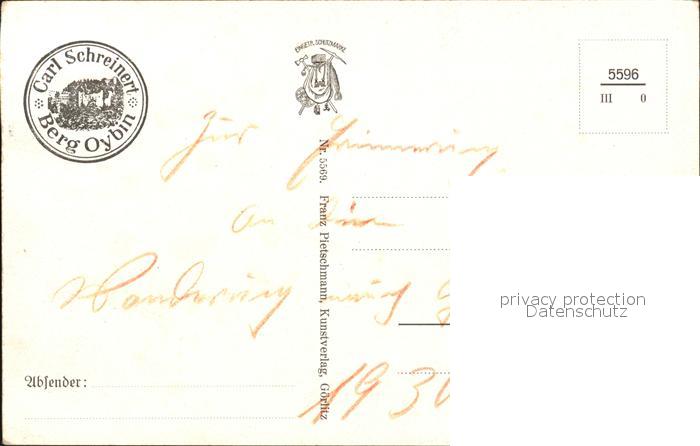 Carl Schreinert
Berg Oybin
EINGETR. SCHUTZMARKE
5596
III 0
Zur Erinnerung
an die
Wanderung nach
193
Nr. 5569. Franz Pietschmann, Kunstverlag, Görlitz
Absender:
privacy protection
Datenschutz